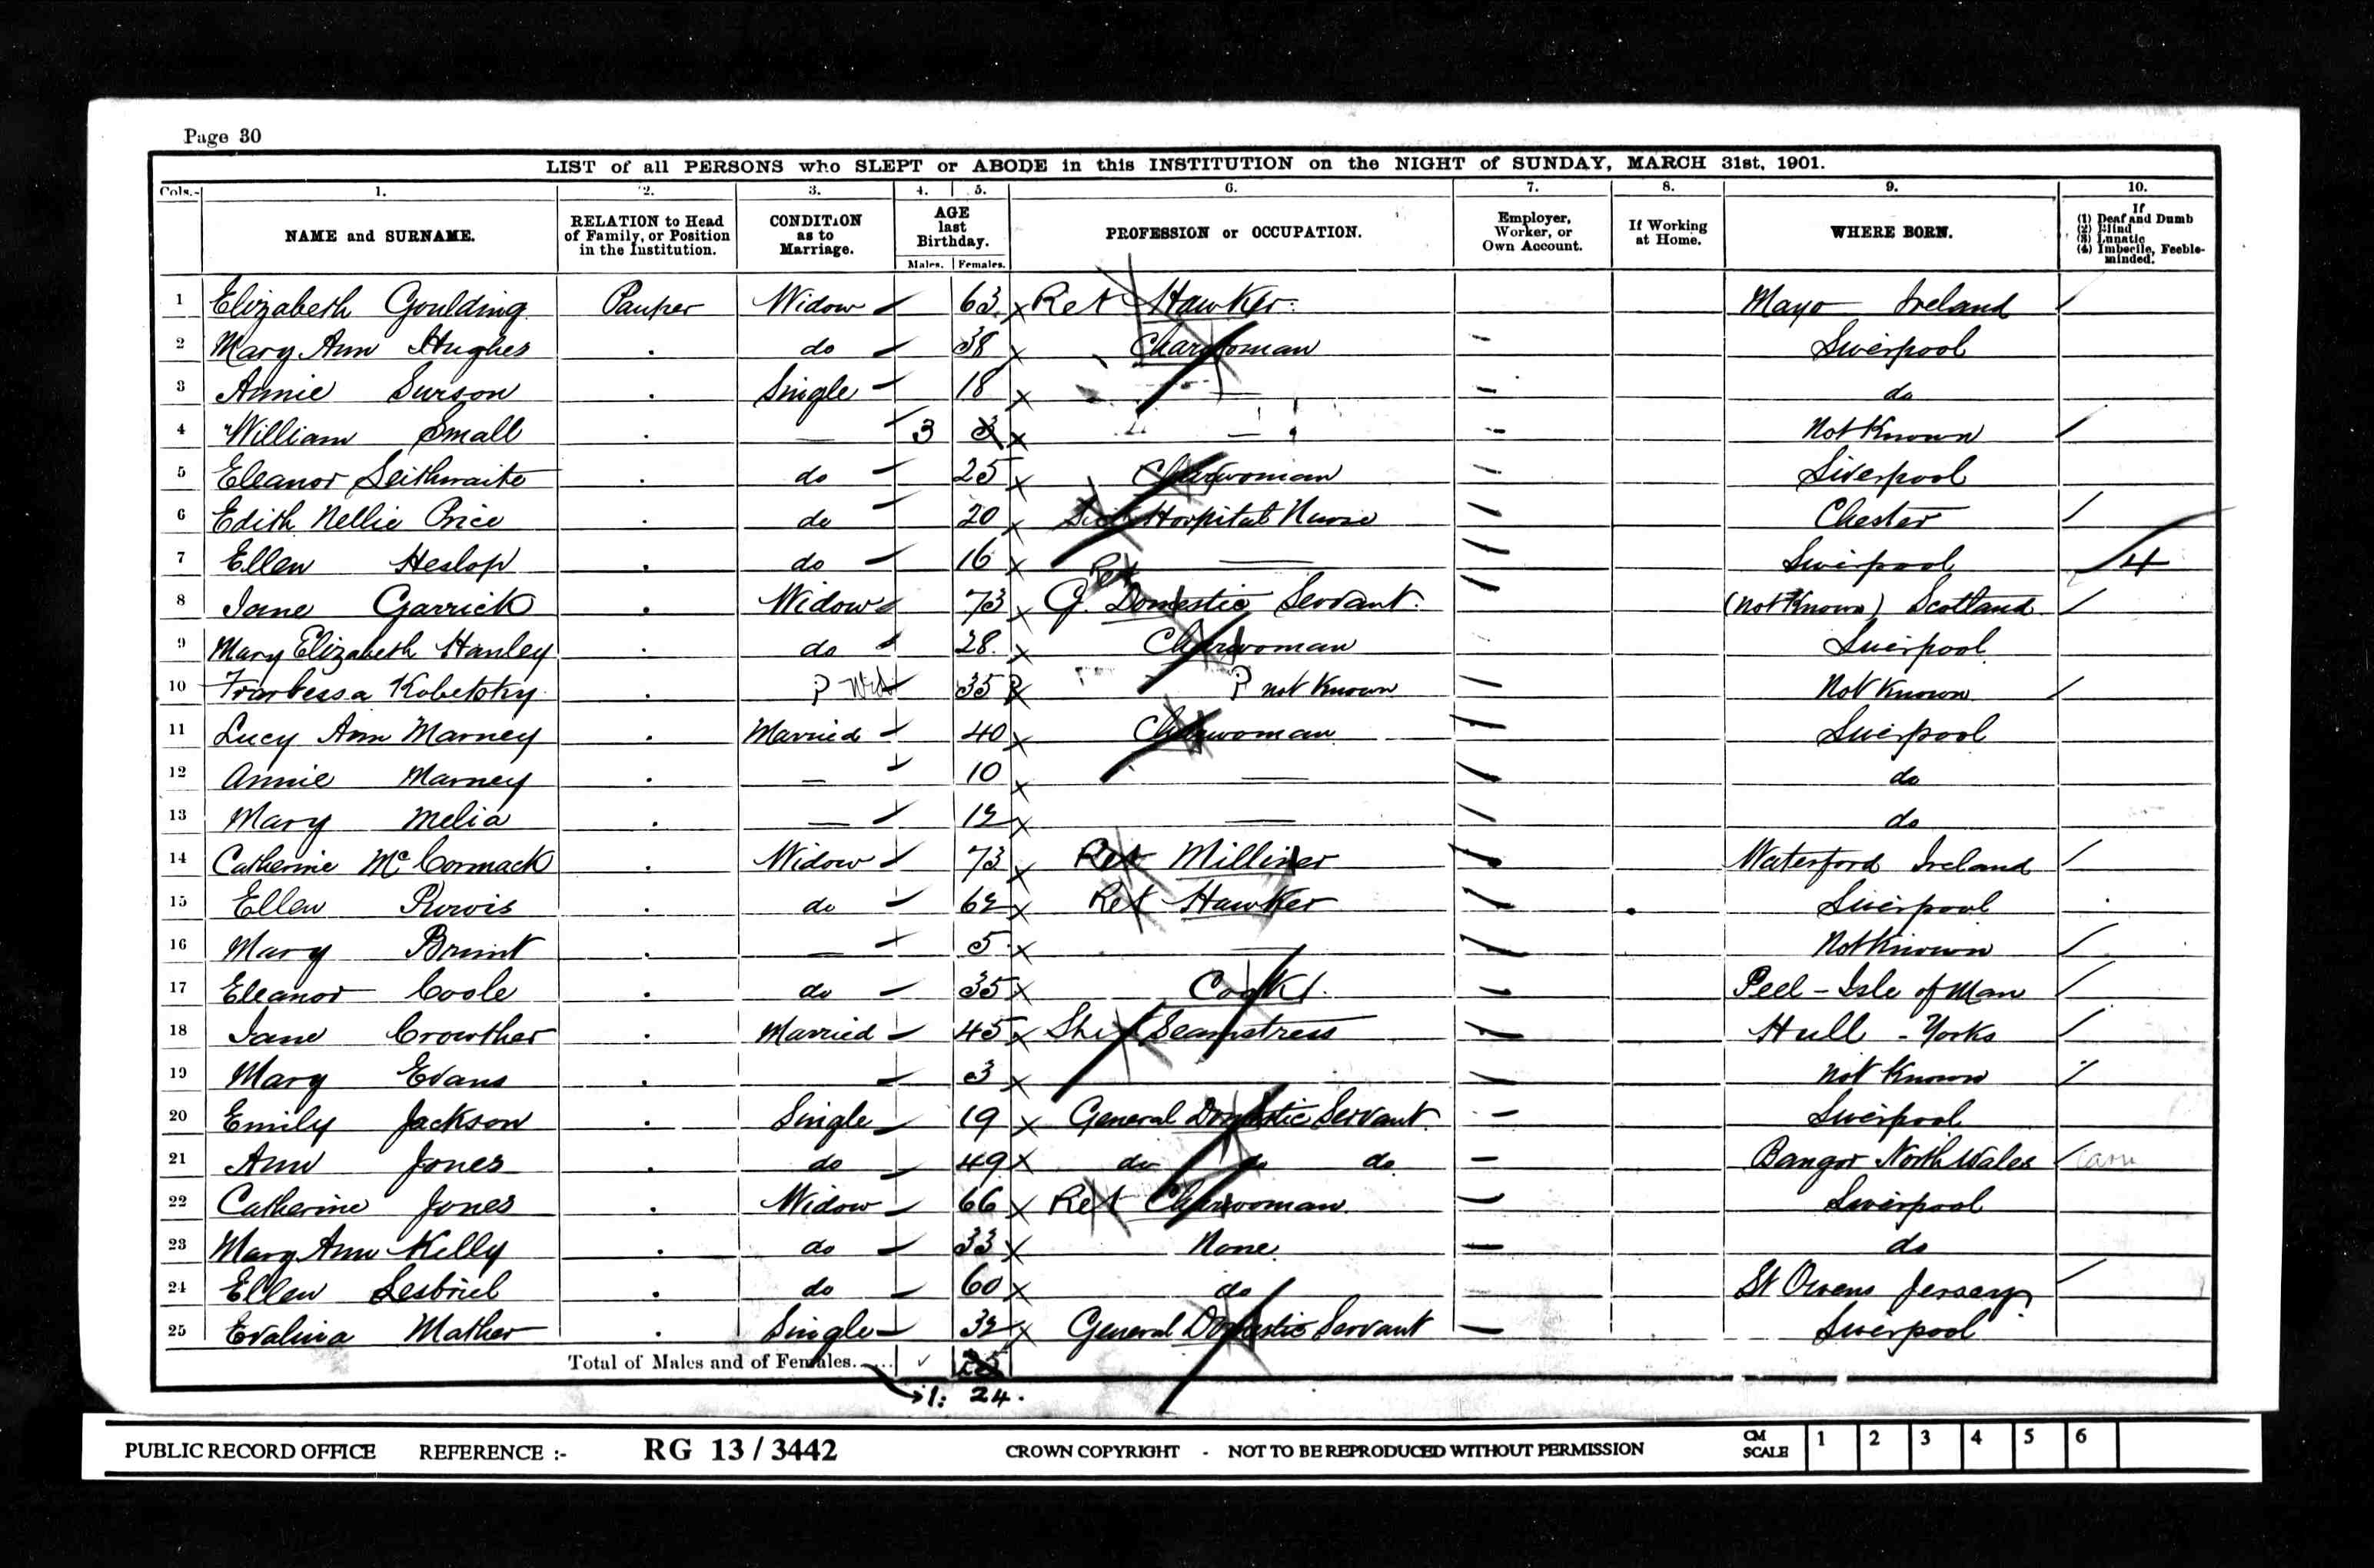 Page 30
LIST of all PERSONS who SLEPT or ABODE in this INSTITUTION on the NIGHT of SUNDAY, MARCH 31st, 1901.
Cols. 1. 2. 3. 4. 5. 6. 7. 8. 9. 10.
NAME and SURNAME. RELATION to Head of Family, or Position in the Institution. CONDITION as to Marriage. AGE last Birthday. Males. Females. PROFESSION or OCCUPATION. Employer, Worker, or Own Account. If Working at Home. WHERE BORN. If (1) Deaf and Dumb (2) Blind (3) Lunatic (4) Imbecile, Feeble-minded.
1 Elizabeth Goulding Pauper Widow 63 Ret Hawker Mayo Ireland
2 Mary Ann Hughes do 38 Charwoman Liverpool
3 Annie Surson Single 18 — do
4 William Small — 3 3 — Not Known
5 Eleanor Leithwaite do 25 Charwoman Liverpool
6 Edith Nellie Price do 20 Sick Hospital Nurse Chester
7 Ellen Heslop do 16 — Liverpool 4
8 Jane Garrick Widow 73 Ret G. Domestic Servant (Not Known) Scotland
9 Mary Elizabeth Hanley do 28 Charwoman Liverpool
10 Kobetsky ? Wid 35 ? not Known Not Known
11 Lucy Ann Marney Married 40 Charwoman Liverpool
12 Annie Marney — 10 — do
13 Mary Melia — 12 — do
14 Catherine McCormack Widow 73 Ret Milliner Waterford Ireland
15 Ellen Purvis do 62 Ret Hawker Liverpool
16 Mary Brunt — 5 — Not Known
17 Eleanor Coole do 35 Cook Peel - Isle of Man
18 Jane Crowther Married 45 Seamstress Hull - Yorks
19 Mary Evans 3 Not Known
20 Emily Jackson Single 19 General Domestic Servant Liverpool
21 Ann Jones do 49 do do do Bangor North Wales Carn
22 Catherine Jones Widow 66 Ret Charwoman Liverpool
23 Mary Ann Kelly do 33 None do
24 Ellen Lesbriel do 60 do St Owens Jersey
25 Evalina Mather Single 32 General Domestic Servant Liverpool
Total of Males and of Females 25
1: 24.
PUBLIC RECORD OFFICE REFERENCE :- RG 13 / 3442 CROWN COPYRIGHT - NOT TO BE REPRODUCED WITHOUT PERMISSION CM SCALE 1 2 3 4 5 6